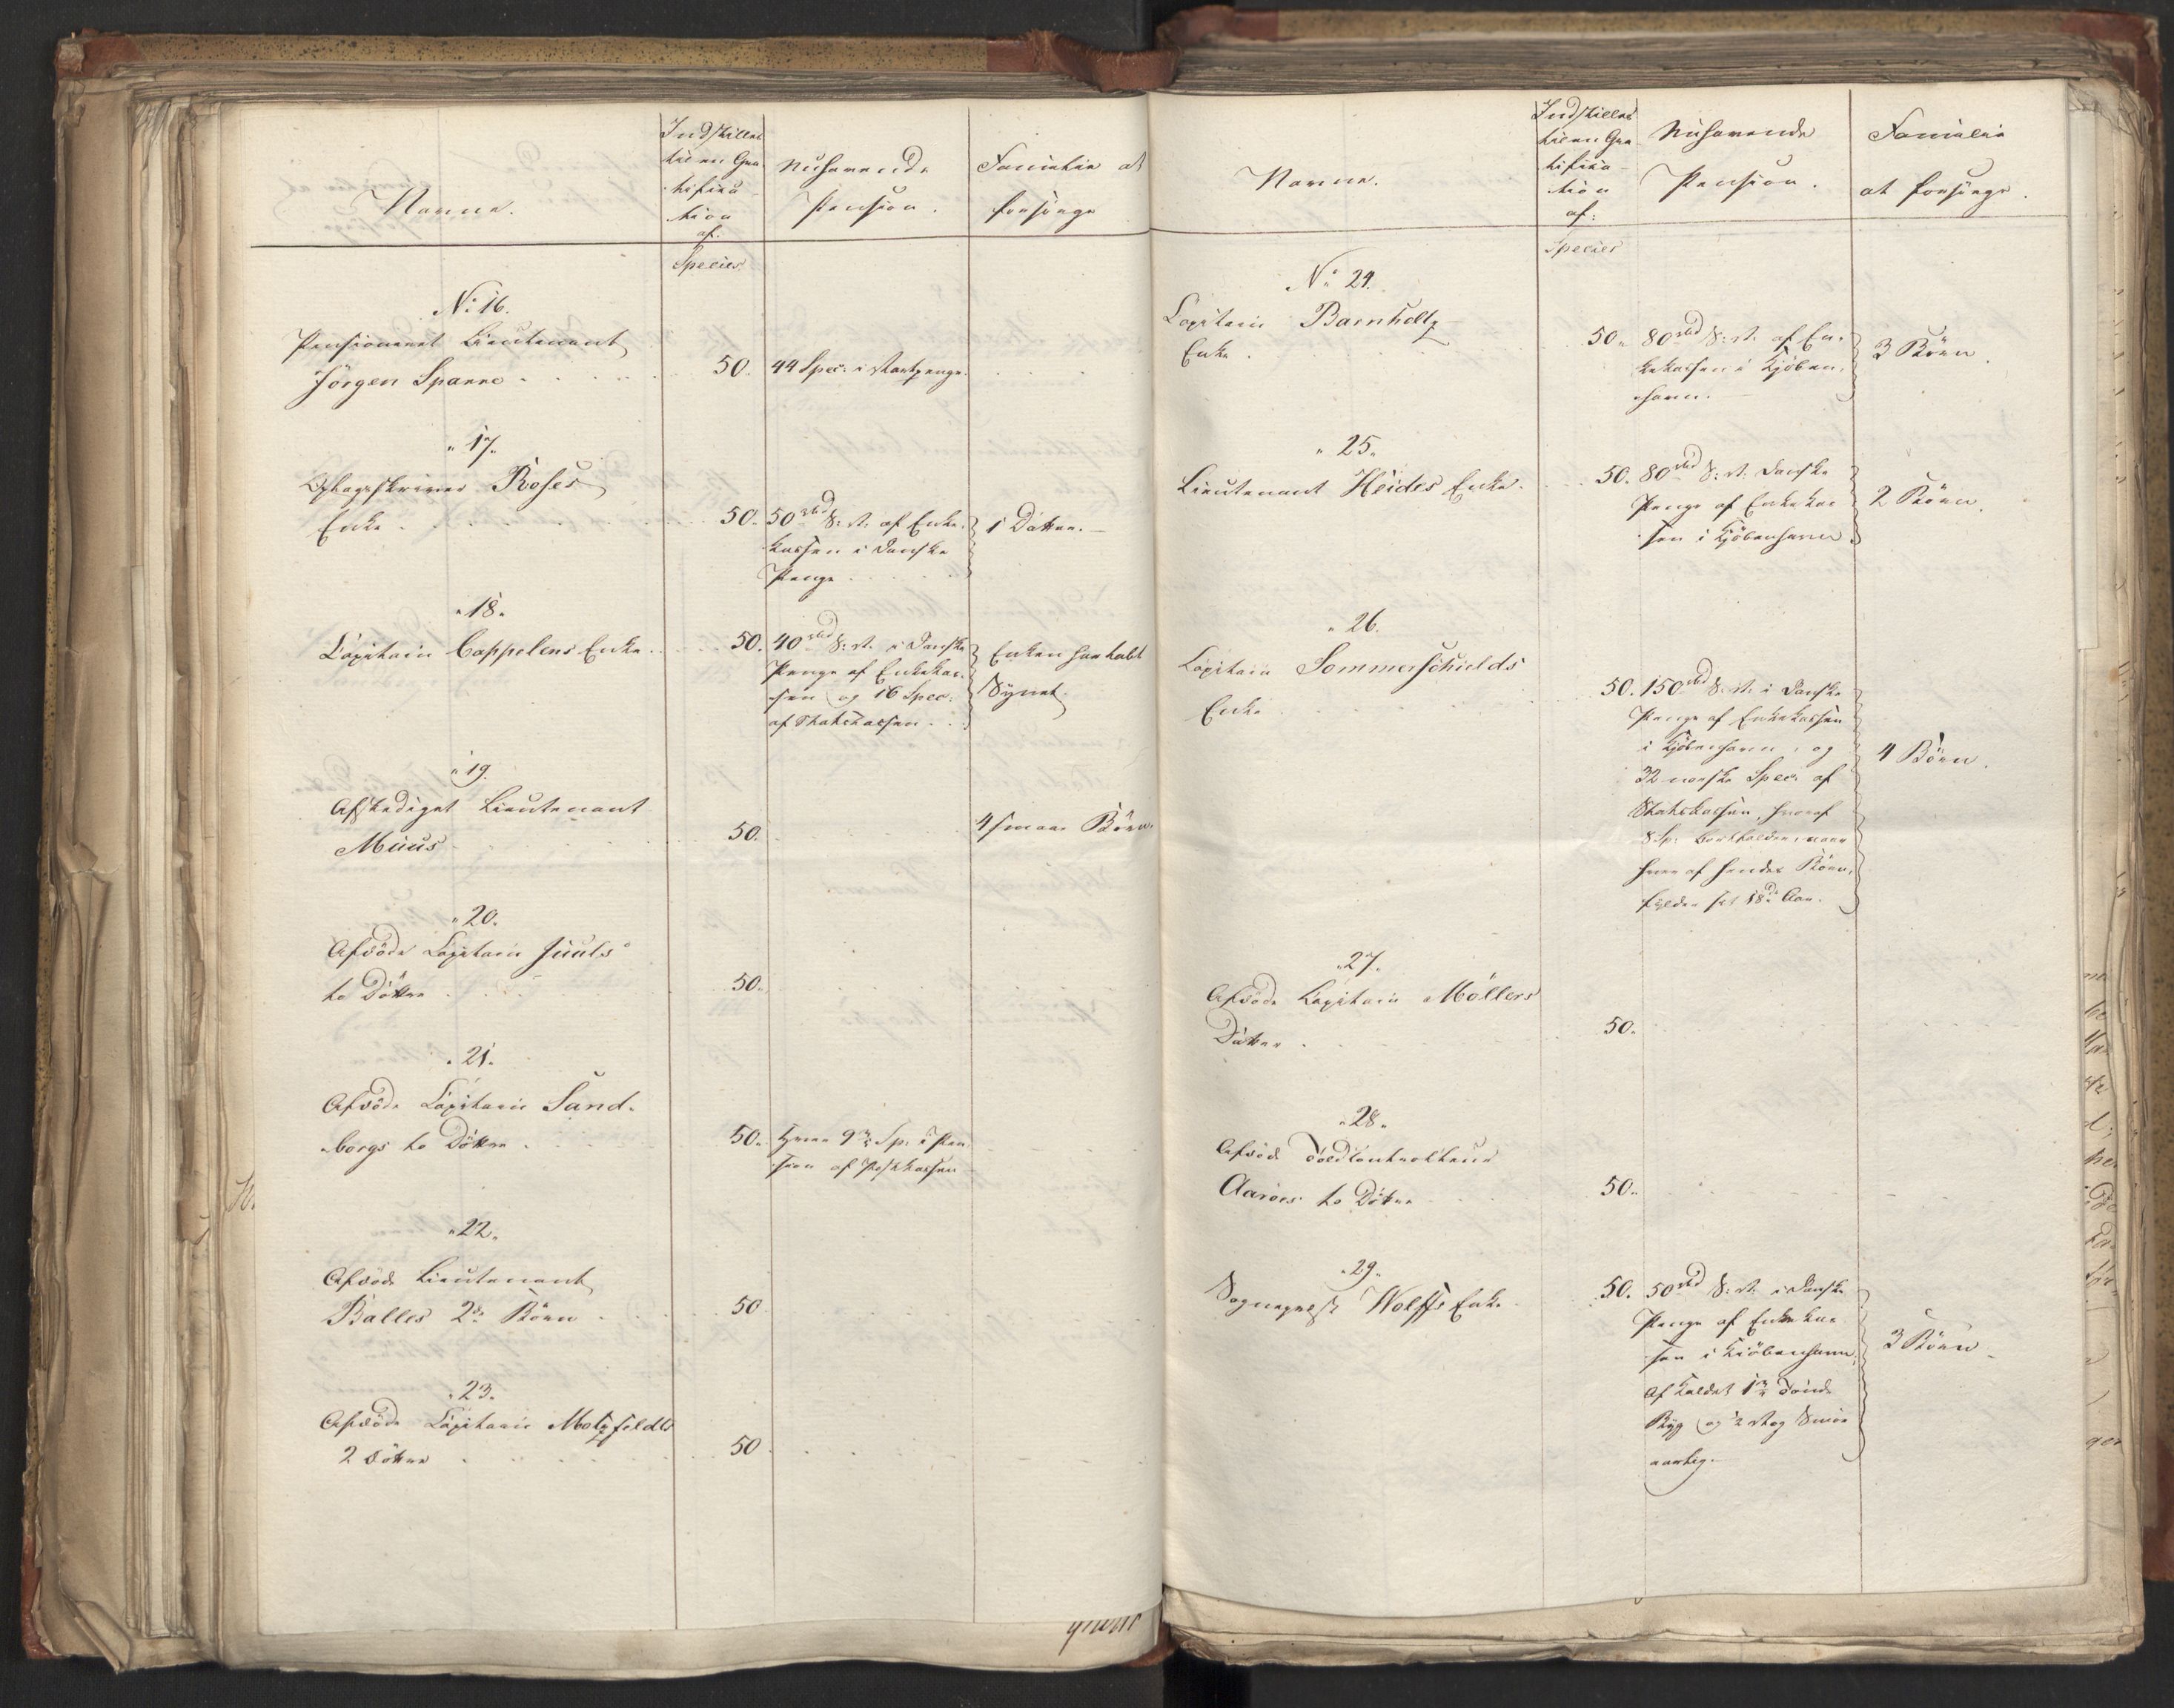 Navne.
Indstillet
til en Gra-
tifica-
tion
af:
Species
Nuhavende
Pension.
Familie at
forsörge
No 16.
Pensioneret Lieutenant
Jörgen Spanne
50. 44 Spec: i Vartpenge.
" 17.
Oplagsskriver Roses
Enke
50. 50 rbd S: V. af Enke-
kassen i Danske
Penge
1 Datter.
" 18.
Capitain Cappelens Enke
50. 40 rbd S: V. i Danske
Penge af Enkekas-
sen og 16 Spec:
af Statskassen
Enken har tabt
Synet.
" 19.
Afskediget Lieutenant
Muus
50.
4 smaae Börn.
" 20.
Afdöde Capitain Juuls
to Döttre
50.
" 21.
Afdöde Capitain Sand-
borgs to Döttre
50. Hver 9 Sp: i Pen-
sion af Postkassen
" 22.
Afdöde Lieutenant
Balles 2de Börn
50
" 23.
Afdöde Capitain Motzfeldts
2 Döttre
50
Navne.
Indstillet
til en Gra-
tifica-
tion
af:
Species
Nuhavende
Pension.
Familie
at forsörge.
No 24.
Capitain Barnholtz
Enke.
50. 80 rbd S: V. af En-
kekassen i Kjöben-
havn.
3 Börn.
" 25.
Lieutenant Heides Enke.
50. 80 rbd S: V. Danske
Penge af Enkekas
sen i Kjöbenhavn
2 Börn.
" 26.
Capitain Sommerschields
Enke
50. 150 rbd S: V. i Danske
Penge af Enkekassen
i Kjöbenhavn, og
32 norske Spec: af
Statskassen, hvoraf
8 Sp: bortfalder, naar
hver af hendes Börn
fylder sit 18de Aar.
4 Börn.
" 27.
Afdöde Capitain Möllers
Datter
50.
" 28.
Afdöd Toldcontrolleur
Aaröes to Döttre
50.
" 29.
Sognepræst Wolffs Enke
50. 50 rbd S: V. i Danske
Penge af Enkekas
sen i Kiöbenhavn,
af Kaldet 1 Tönde
Byg og 2 Vog Smör
aarlig.
3 Börn